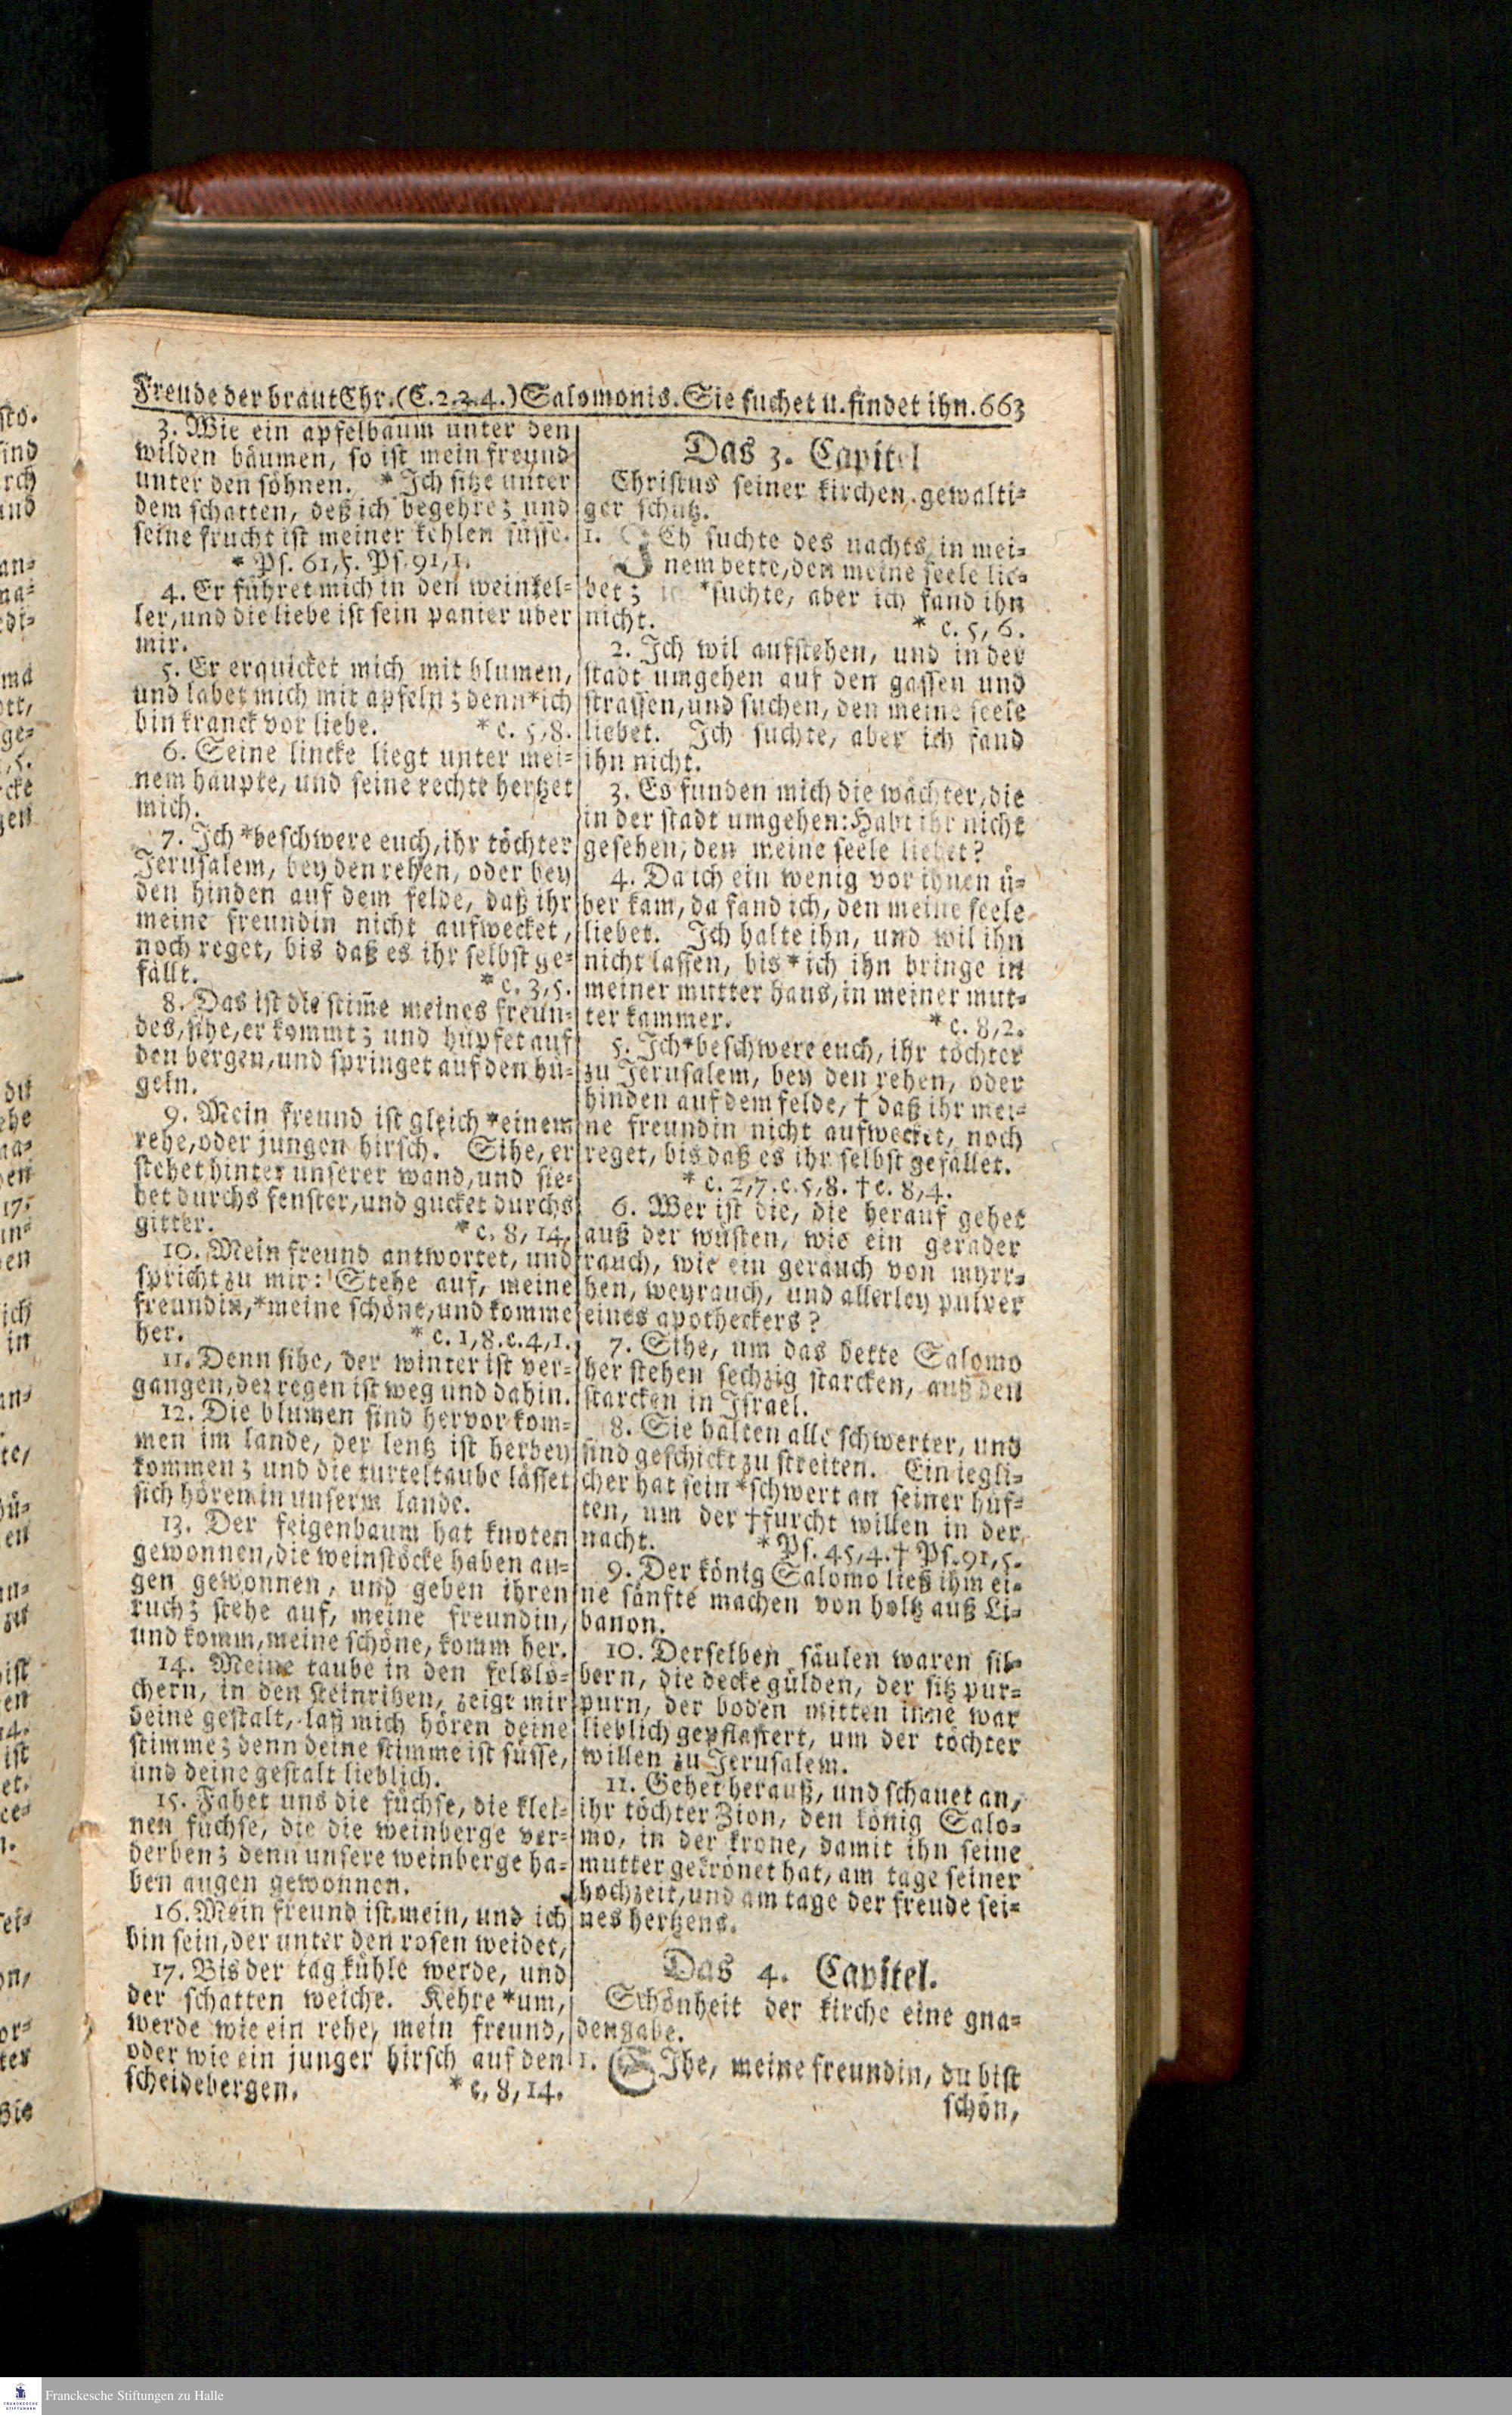 Freude der braut Chr. (C. 2. 3. 4.) Salomonis. Sie suchet u. findet ihn. 663
3. Wie ein apfelbaum unter den
wilden bäumen, so ist mein freund
unter den söhnen. * Ich sitze unter
dem schatten, deß ich begehre; und
seine frucht ist meiner kehlen süsse.
* Ps. 61, 5. Ps. 91, 1.
4. Er führet mich in den weinkel-
ler, und die liebe ist sein panier über
mir.
5. Er erquicket mich mit blumen,
und labet mich mit äpfeln; denn * ich
bin kranck vor liebe. * c. 5, 8.
6. Seine lincke liegt unter mei-
nem haupte, und seine rechte hertzet
mich.
7. Ich * beschwere euch, ihr töchter
Jerusalem, bey den rehen, oder bey
den hinden auf dem felde, daß ihr
meine freundin nicht aufwecket,
noch reget, bis daß es ihr selbst ge-
fällt. * c. 3, 5.
8. Das ist die stim̃e meines freun-
des, sihe, er kommt; und hüpfet auf
den bergen, und springet auf den hü-
geln.
9. Mein freund ist gleich * einem
rehe, oder jungen hirsch. Sihe, er
stehet hinter unserer wand, und sie-
het durchs fenster, und gucket durchs
gitter. * c. 8, 14.
10. Mein freund antwortet, und
spricht zu mir: Stehe auf, meine
freundin, * meine schöne, und komme
her. * c. 1, 8. c. 4, 1.
11. Denn sihe, der winter ist ver-
gangen, der regen ist weg und dahin.
12. Die blumen sind hervor kom-
men im lande, der lentz ist herbey
kommen; und die turteltaube lässet
sich hören in unserm lande.
13. Der feigenbaum hat knoten
gewonnen, die weinstöcke haben au-
gen gewonnen, und geben ihren
ruch; stehe auf, meine freundin,
und komm, meine schöne, komm her.
14. Meine taube in den felslö-
chern, in den steinritzen, zeige mir
deine gestalt, laß mich hören deine
stimme; denn deine stimme ist süsse,
und deine gestalt lieblich.
15. Fahet uns die füchse, die klei-
nen füchse, die die weinberge ver-
derben; denn unsere weinberge ha-
ben augen gewonnen.
16. Mein freund ist mein, und ich
bin sein, der unter den rosen weidet,
17. Bis der tag kühle werde, und
der schatten weiche. Kehre * um,
werde wie ein rehe, mein freund,
oder wie ein junger hirsch auf den
scheidebergen. * c. 8, 14.
Das 3. Capitel
Christus seiner kirchen gewalti-
ger schutz.
1. ICh suchte des nachts in mei-
nem bette, den meine seele lie-
bet; * suchte, aber ich fand ihn
nicht. * c. 5, 6.
2. Ich wil aufstehen, und in der
stadt umgehen auf den gassen und
strassen, und suchen, den meine seele
liebet. Ich suchte, aber ich fand
ihn nicht.
3. Es funden mich die wächter, die
in der stadt umgehen: Habt ihr nicht
gesehen, den meine seele liebet?
4. Da ich ein wenig vor ihnen ü-
ber kam, da fand ich, den meine seele
liebet. Ich halte ihn, und wil ihn
nicht lassen, bis * ich ihn bringe in
meiner mutter haus, in meiner mut-
ter kammer. * c. 8, 2.
5. Ich * beschwere euch, ihr töchter
zu Jerusalem, bey den rehen, oder
hinden auf dem felde, † daß ihr mei-
ne freundin nicht aufwecket, noch
reget, bis daß es ihr selbst gefället.
* c. 2, 7. c. 5, 8. † c. 8, 4.
6. Wer ist die, die herauf gehet
auß der wüsten, wie ein gerader
rauch, wie ein gerauch von myrr-
hen, weyrauch, und allerley pulver
eines apotheckers?
7. Sihe, um das bette Salomo
her stehen sechzig starcken, auß den
starcken in Israel.
8. Sie halten alle schwerter, und
sind geschickt zu streiten. Ein iegli-
cher hat sein * schwert an seiner hüf-
ten, um der † furcht willen in der
nacht. * Ps. 45, 4. † Ps. 91, 5.
9. Der könig Salomo ließ ihm ei-
ne sänfte machen von holtz auß Li-
banon.
10. Derselben säulen waren sil-
bern, die decke gülden, der sitz pur-
purn, der boden mitten inne war
lieblich gepflastert, um der töchter
willen zu Jerusalem.
11. Gehet herauß, und schauet an,
ihr töchter Zion, den könig Salo-
mo, in der krone, damit ihn seine
mutter gekrönet hat, am tage seiner
hochzeit, und am tage der freude sei-
nes hertzens.
Das 4. Capitel.
Schönheit der kirche eine gna-
dengabe.
1. SIhe, meine freundin, du bist
schön,
Franckesche Stiftungen zu Halle